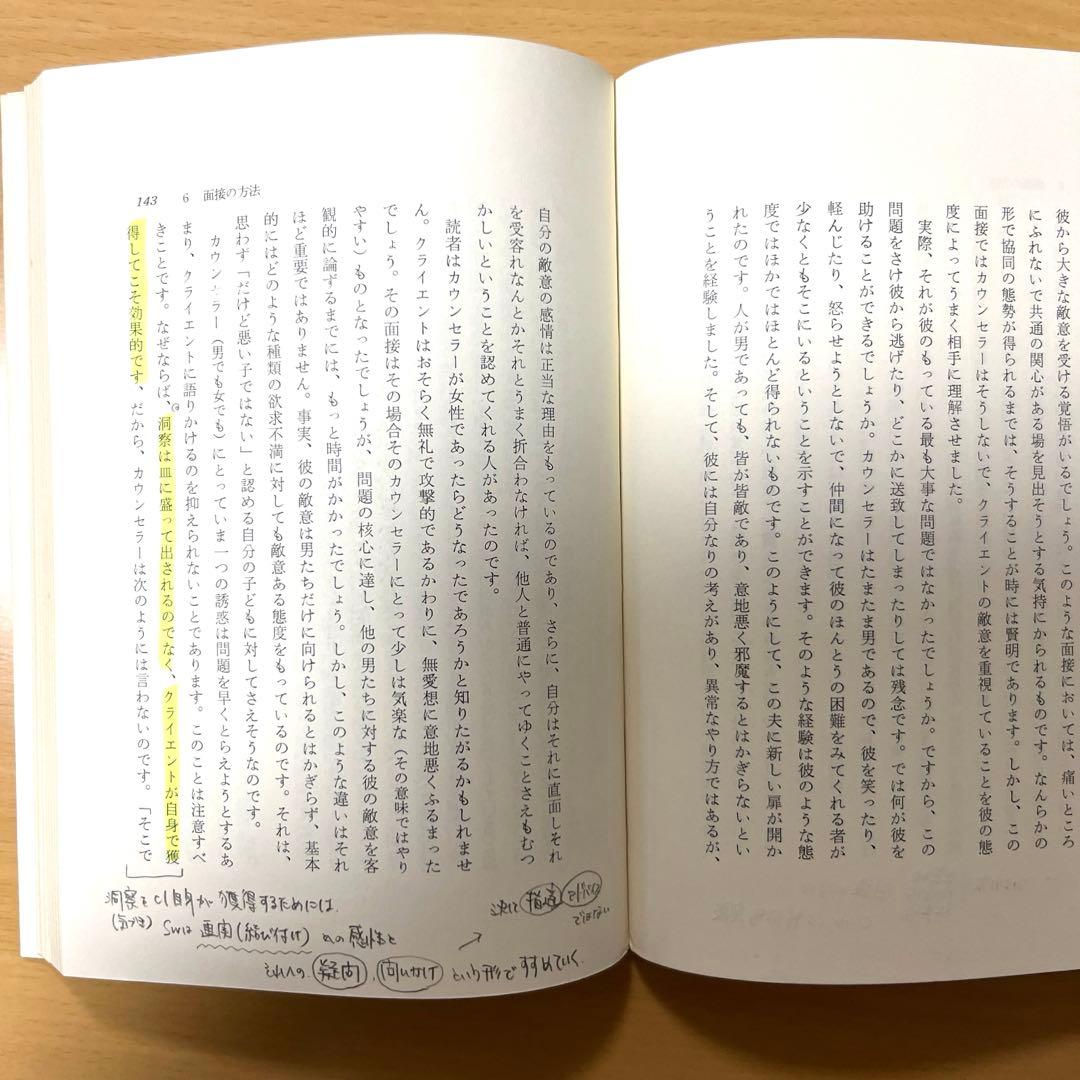 彼から大きな敵意を受ける覚悟がいるでしょう。このような面接においては、痛いところ
にふれないで共通の関心がある場を見出そうとする気持にかられるものです。なんらかの
形で協同の態勢が得られるまでは、そうすることが時には賢明であります。しかし、この
面接ではカウンセラーはそうしないで、クライエントの敵意を重視していることを彼の態
度によってうまく相手に理解させました。
実際、それが彼のもっている最も大事な問題ではなかったでしょうか。ですから、この
問題をさけ彼から逃げたり、どこかに送致してしまったりしては残念です。では何が彼を
助けることができるでしょうか。カウンセラーはたまたま男であるので、彼を笑ったり、
軽んじたり、怒らせようとしないで、仲間になって彼のほんとうの困難をみてくれる者が
少なくともそこにいるということを示すことができます。そのような経験は彼のような態
度ではほかではほとんど得られないものです。このようにして、この夫に新しい扉が開か
れたのです。人が男であっても、皆が皆敵であり、意地悪く邪魔するとはかぎらないとい
うことを経験しました。そして、彼には自分なりの考えがあり、異常なやり方ではあるが、
自分の敵意の感情は正当な理由をもっているのであり、さらに、自分はそれに直面しそれ
を受容れなんとかそれとうまく折合わなければ、他人と普通にやってゆくことさえもむつ
かしいということを認めてくれる人があったのです。
読者はカウンセラーが女性であったらどうなったであろうかと知りたがるかもしれませ
ん。クライエントはおそらく無礼で攻撃的であるかわりに、無愛想に意地悪くふるまった
でしょう。その面接はその場合そのカウンセラーにとって少しは気楽な（その意味ではやり
やすい）ものとなったでしょうが、問題の核心に達し、他の男たちに対する彼の敵意を客
観的に論ずるまでには、もっと時間がかかったでしょう。しかし、このような違いはそれ
ほど重要ではありません。事実、彼の敵意は男たちだけに向けられるとはかぎらず、基本
的にはどのような種類の欲求不満に対しても敵意ある態度をもっているのです。それは、
思わず「だけど悪い子ではない」と認める自分の子どもに対してさえそうなのです。
カウンセラー（男でも女でも）にとっていま一つの誘惑は問題を早くとらえようとするあ
まり、クライエントに語りかけるのを抑えられないことであります。このことは注意すべ
きことです。なぜならば、洞察は皿に盛って出されるのでなく、クライエントが自身で獲
得してこそ効果的です。だから、カウンセラーは次のようには言わないのです。「そこで
143 6 面接の方法
洞察をCl自身が獲得するためには、
(気づき) SWは 要約(結び付け) 感情を
それへの 疑問 問いかけ という形ですすめていく。
→
決して 指摘 アドバイス
ではない